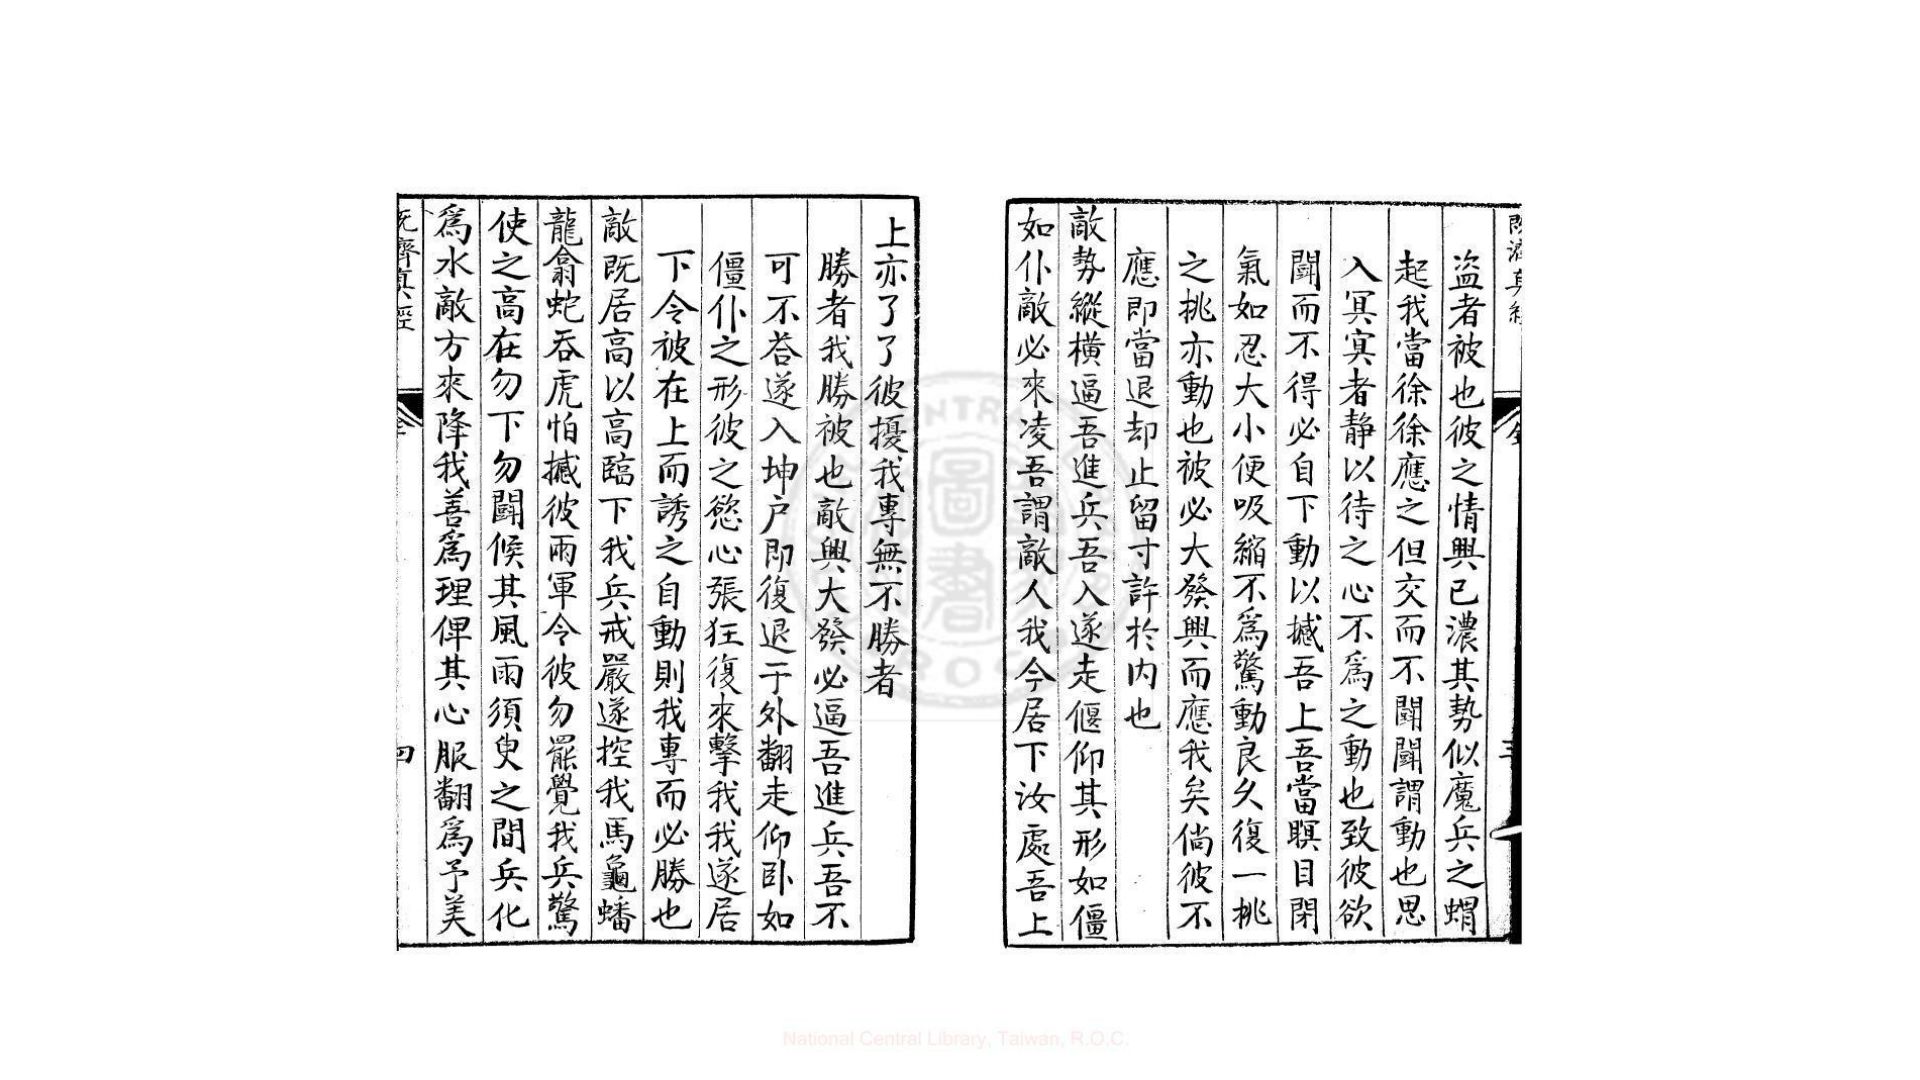 既濟真經
盗者被也彼之情興已濃其勢似魔兵之蝟
起我當徐徐應之但交而不鬪鬪謂動也思
入冥冥者静以待之心不爲之動也致彼欲
鬪而不得必自下動以撼吾上吾當瞑目閉
氣如忍大小便吸縮不爲驚動良久復一挑
之挑亦動也被必大發興而應我矣倘彼不
應即當退却止留寸許於内也
敵勢縱横逼吾進兵吾入遂走偃仰其形如僵
如仆敵必來凌吾謂敵人我今居下汝處吾上
上亦了了彼擾我專無不勝者
勝者我勝被也敵興大發必逼吾進兵吾不
可不荅遂入坤户即復退于外翻走仰卧如
僵仆之形彼之慾心張狂復來擊我我遂居
下令被在上而誘之自動則我專而必勝也
敵既居高以高臨下我兵戒嚴遂控我馬龜蟠
龍翕蛇吞虎怕撼彼兩軍令彼勿罷覺我兵驚
使之高在勿下勿鬪候其風雨須臾之間兵化
爲水敵方來降我善爲理俾其心服翻爲予美
既齊真經
四
National Central Library, Taiwan, R.O.C.